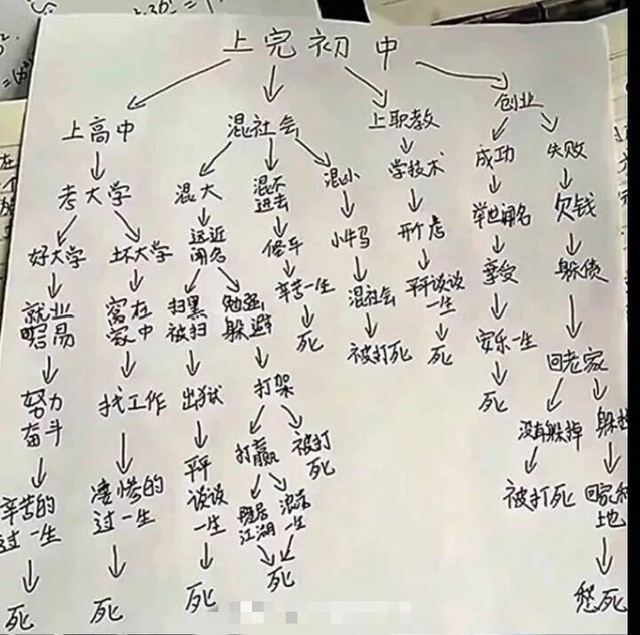 上完初中
上高中
考大学
好大学
就业
容易
努力
奋斗
辛苦的
过一生
死
坏大学
窝在
家中
找工作
凄惨的
过一生
死
混社会
混大
远近
闻名
扫黑
被扫
出狱
平平
谈谈
一生
死
勉强
躲避
打架
打赢
隐居
江湖
流荡
一生
死
被打
死
混不
进去
修车
辛苦一生
死
混小
小牛马
混社会
被打死
上职教
学技术
开个店
平平谈谈
一生
死
创业
成功
举世闻名
享受
安乐一生
死
失败
欠钱
躲债
回老家
没有躲掉
被打死
躲掉
回家种
地
愁死